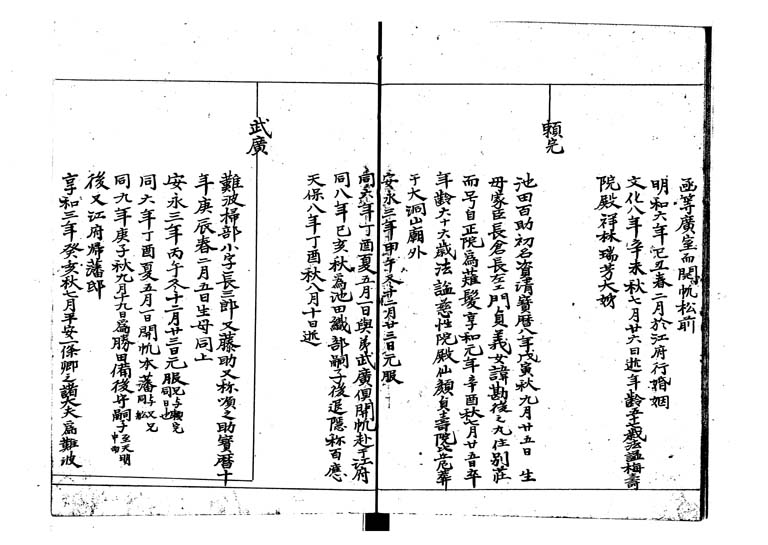 明和六年己丑春二月於江府行婚姻
文化八年辛未秋七月廿六日逝年齢法謚梅壽
院殿祥林瑞芳大姉
頼完
池田百助初名資清寶暦八年戊寅秋九月廿五日 生
母家臣長倉長左エ門貞義女諱勘後之九住別荘
而号自正院為薙髪享和元年辛酉秋七月廿五日卒
年齢六十六歳法謚慈性院殿仙顔貞壽葬
于大洞山廟外
安永三年甲午冬十二月廿三日元服
同六年丁酉夏五月一日與弟武廣倶開帆赴于江府
同八年己亥秋為池田織部嗣子後退隠称百應
天保八年丁酉秋八月十日逝
武廣
難波掃部小字長三郎又藤助又称項之助寶暦十
年庚辰春二月五日生母同上
安永三年丙午冬十二月廿三日元服兄頼完同日也
同六年丁酉夏五月一日開帆本藩
同九年庚子秋九月十九日為勝田備後守嗣子至天明
後又江府帰藩邸
享和三年癸亥秋七月平安一條卿之諸大夫為難波